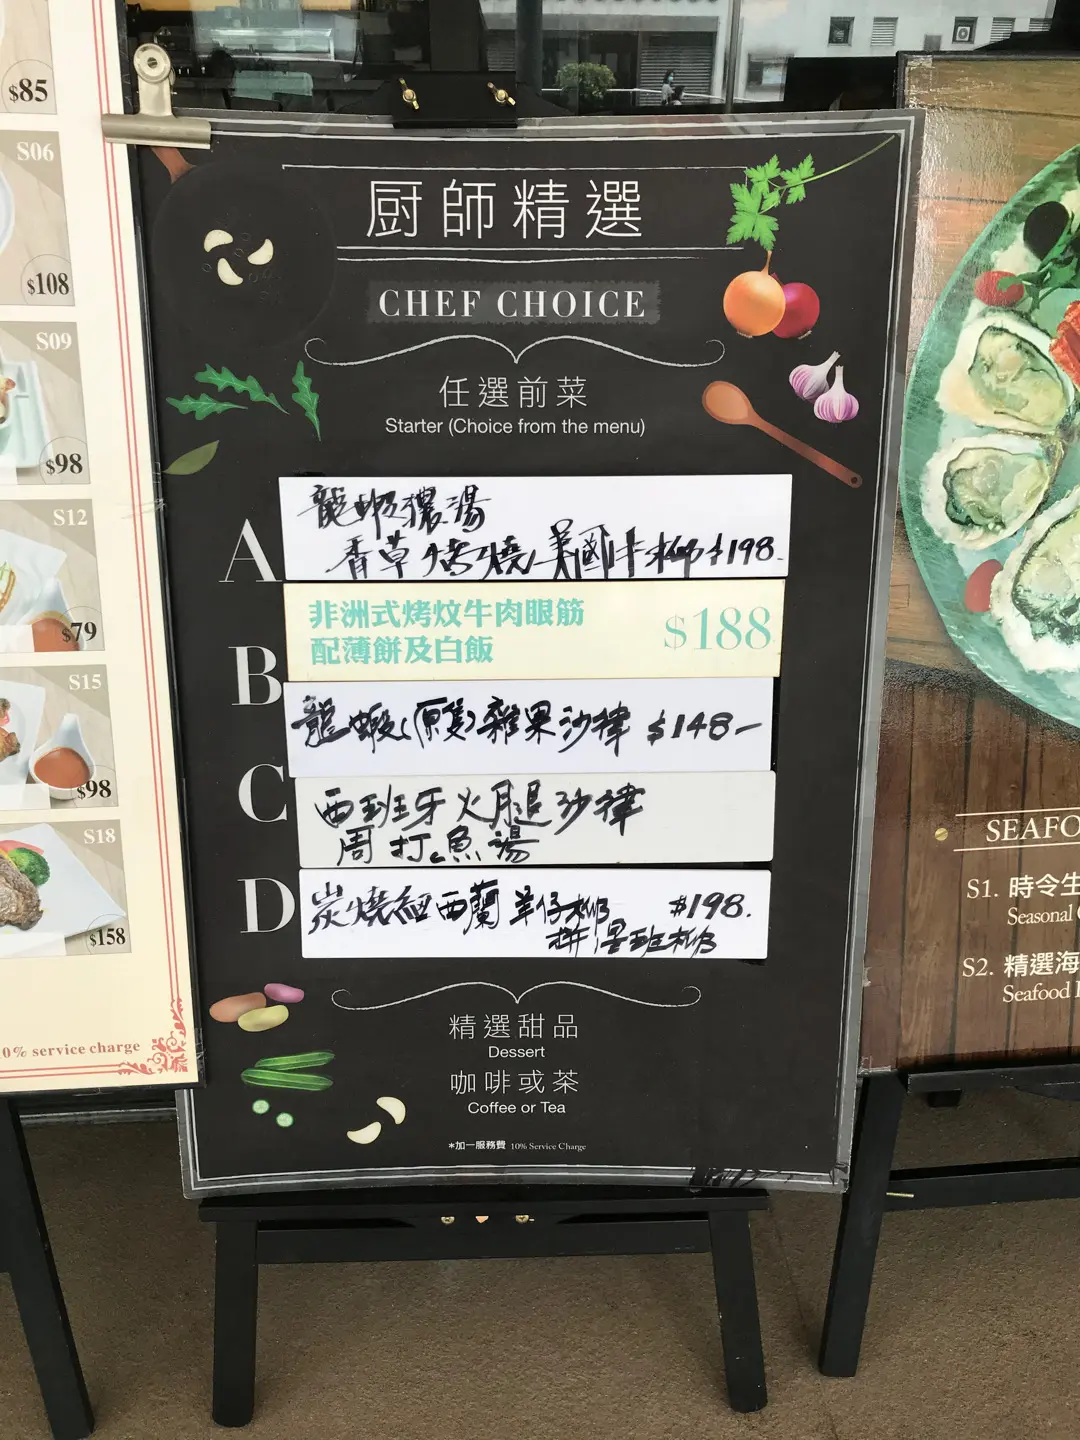 $85
S06
$108
S09
$98
S12
$79
S15
$98
S18
$158
0% service charge
厨師精選
CHEF CHOICE
任選前菜
Starter (Choice from the menu)
A
龍蝦濃湯
香草烤燒美國牛柳 $198.
B
非洲式烤炆牛肉眼筋
配薄餅及白飯
$188
C
龍蝦(原隻)雜果沙律 $148-
西班牙火腿沙律
周打魚湯
D
炭燒紐西蘭羊仔柳 $198.
拼石班柳
精選甜品
Dessert
咖啡或茶
Coffee or Tea
*加一服務費 10% Service Charge
SEAFO
S1. 時令生
Seasonal
S2. 精選海
Seafood